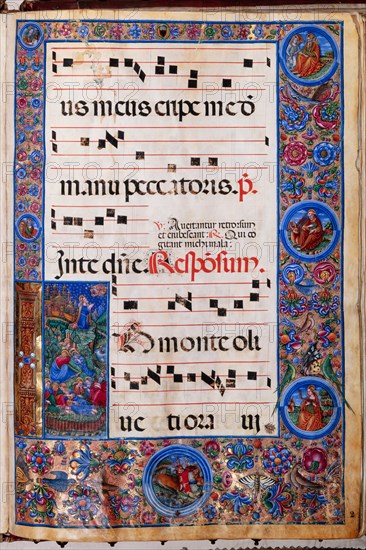 us meus eripe me d̄
manu peccatoris. p̄.
v. Avertantur retrorsum
et erubescant: R. Qui co
gitant michi mala:
In te dn̄e. Responsum.
In monte oli
ue tiora ui
2